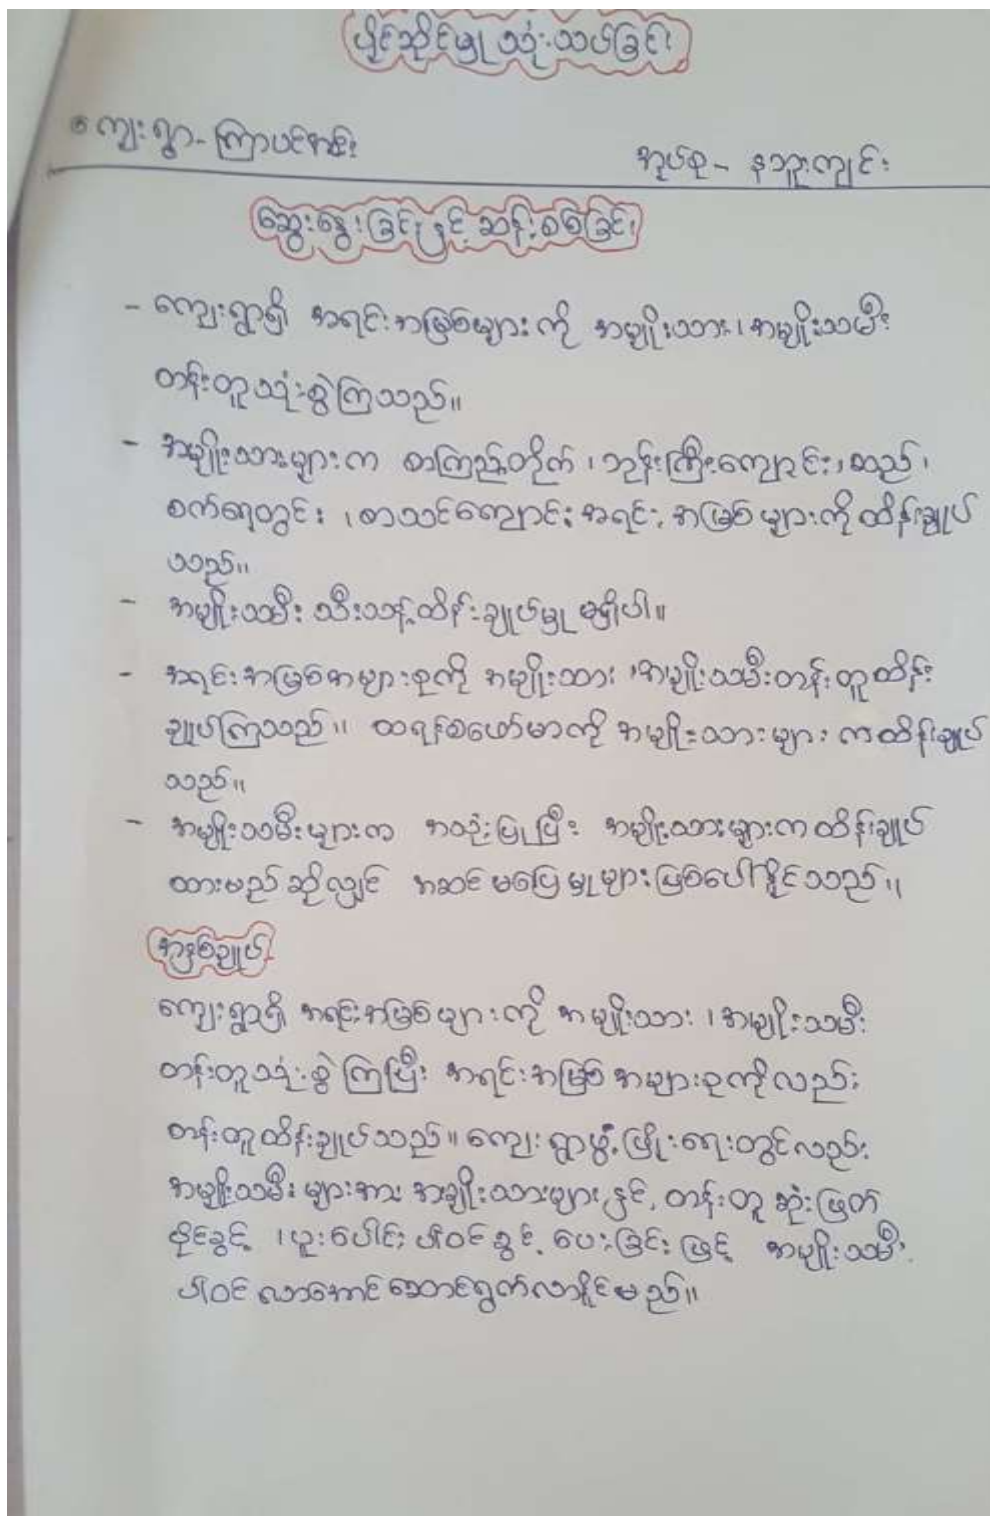 ပိုင်ဆိုင်မှု သုံးသပ်ခြင်း
ကျေးရွာ - ကြာပင်အင်း
အုပ်စု - နဘူးကျင်း
ဆွေးနွေးခြင်းနှင့် ဆန်းစစ်ခြင်း
- ကျေးရွာရှိ အရင်းအမြစ်များ ကို အမျိုးသား၊ အမျိုးသမီး
တန်းတူ သုံးစွဲကြသည်။
- အမျိုးသားများက စာကြည့်တိုက်၊ ဘုန်းကြီးကျောင်း၊ ဆည်၊
စက်ရေတွင်း၊ စာသင်ကျောင်း အရင်းအမြစ်များကို ထိန်းချုပ်
သည်။
- အမျိုးသမီး သီးသန့်ထိန်းချုပ်မှု မရှိပါ။
- အရင်းအမြစ်အများစုကို အမျိုးသား၊ အမျိုးသမီးတန်းတူထိန်း
ချုပ်ကြသည်။ ထရန်စဖော်မာကို အမျိုးသားများ ကထိန်းချုပ်
သည်။
- အမျိုးသမီးများက အသုံးပြုပြီး အမျိုးသားများကထိန်းချုပ်
ထားမည် ဆိုလျှင် အဆင်မပြေမှုများဖြစ်ပေါ်နိုင်သည်။
အနှစ်ချုပ်
ကျေးရွာရှိ အရင်းအမြစ်များ ကို အမျိုးသား၊ အမျိုးသမီး
တန်းတူသုံးစွဲကြပြီး အရင်းအမြစ် အများစုကိုလည်း
တန်းတူထိန်းချုပ်သည်။ ကျေးရွာဖွံ့ဖြိုးရေးတွင်လည်း
အမျိုးသမီး များအား အမျိုးသားများနှင့် တန်းတူ ဆုံးဖြတ်
ပိုင်ခွင့် ၊ ပူးပေါင်း ပါဝင် ခွင့် ပေးခြင်း ဖြင့် အမျိုးသမီး
ပါဝင် လာအောင် ဆောင်ရွက်လာနိုင်မည်။